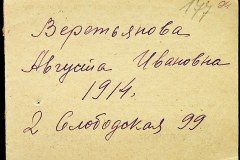 Веретьянова
Августа Ивановна
1914,
2 Слободская 99